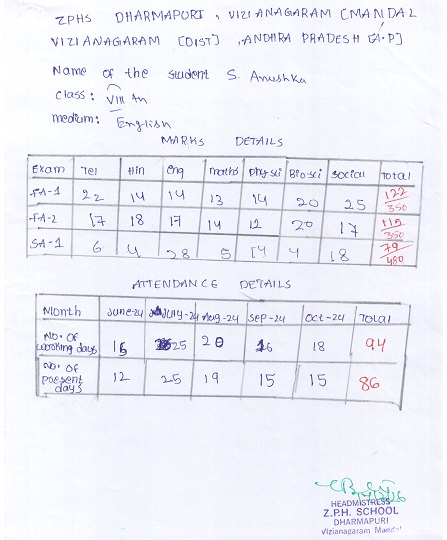 ZPHS DHARMAPURI, VIZIANAGARAM [MANDAL
VIZIANAGARAM [DIST], ANDHRA PRADESH [A.P]
Name of the student S. Anushka
class: VIII th
medium: English
MARKS DETAILS
Exam Tel Hin Eng maths phy sci Bio.sci social Total
FA-1 22 14 14 13 14 20 25 122/350
FA-2 17 18 17 14 12 20 17 115/350
SA-1 6 4 28 5 14 4 18 79/480
ATTENDANCE DETAILS
Month June-24 July-24 Aug-24 Sep-24 Oct-24 Total
No. of working days 15 25 20 16 18 94
No. of present days 12 25 19 15 15 86
HEADMISTRESS
Z.P.H. SCHOOL
DHARMAPURI
Vizianagaram Mandal